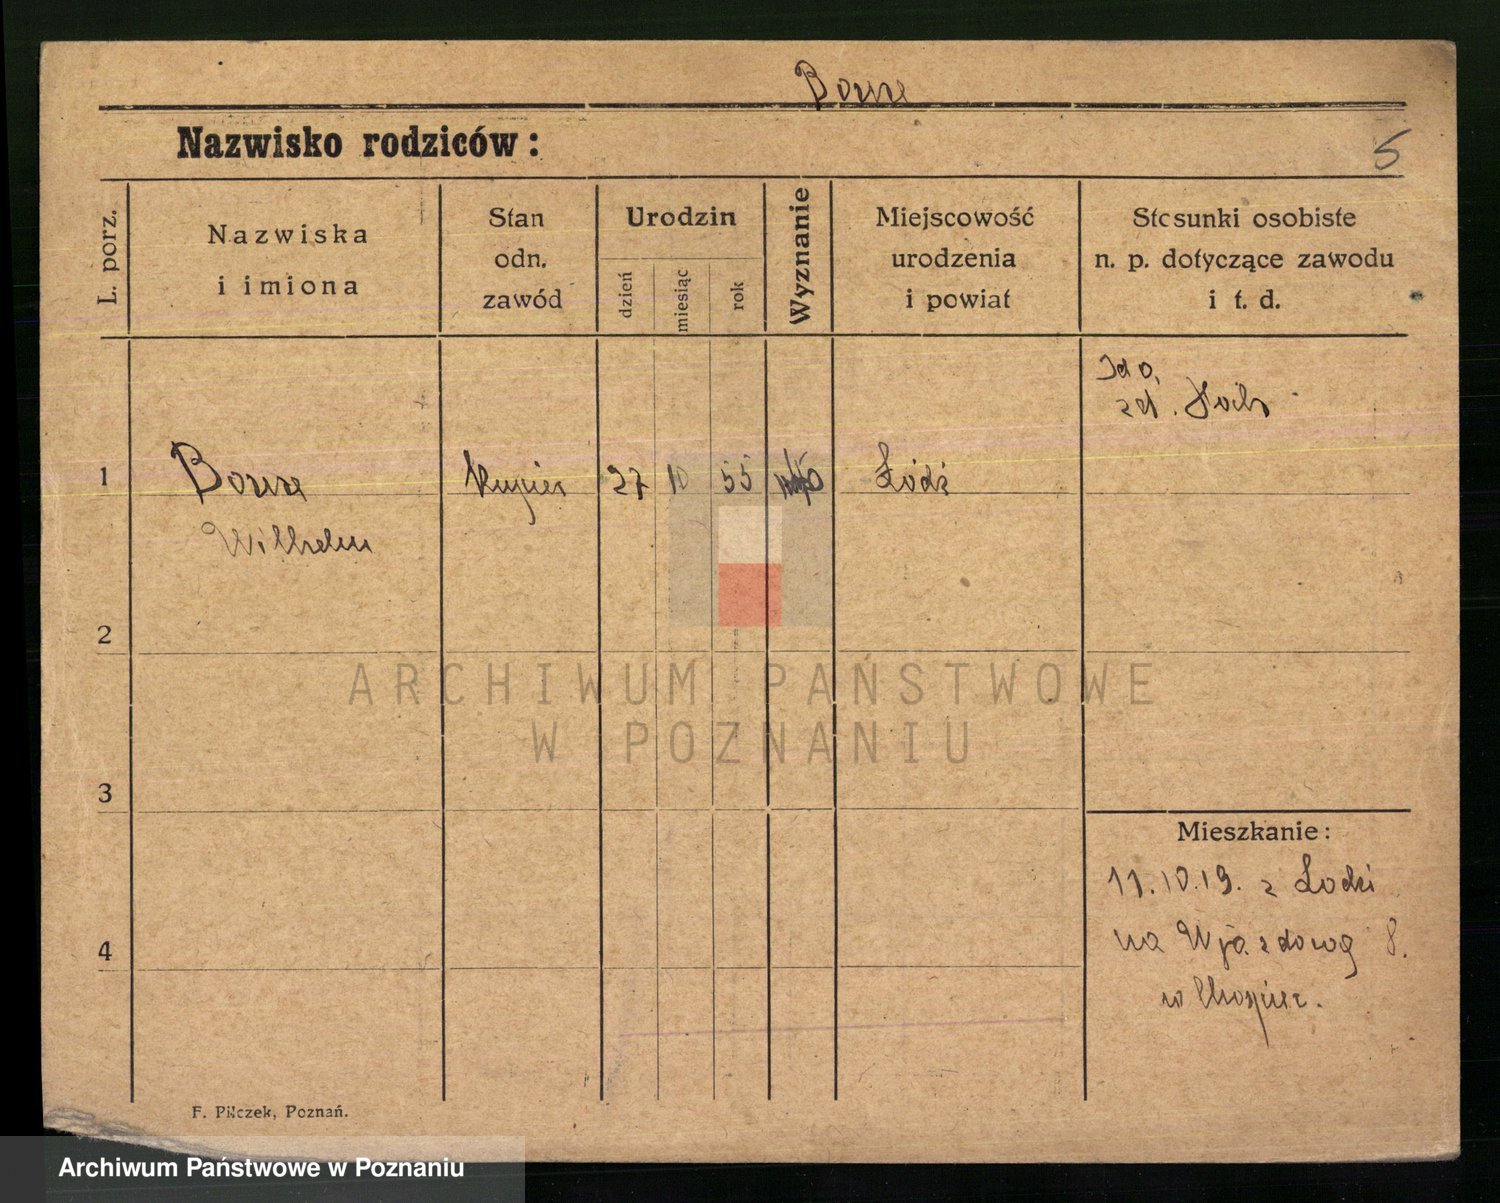 Nazwisko rodziców:
5
L. porz.
Nazwiska
i imiona
Stan
odn.
zawód
Urodzin
dzień
miesiąc
rok
Wyznanie
Miejscowość
urodzenia
i powiat
Stosunki osobiste
n. p. dotyczące zawodu
i t. d.
1
Kupiec
27
10
55
Łódź
Wilhelm
2
3
4
Mieszkanie:
11.10.19. z Łodzi
na Wjazdową 8.
F. Pilczek, Poznań.
ARCHIWUM PAŃSTWOWE
W POZNANIU
Archiwum Państwowe w Poznaniu